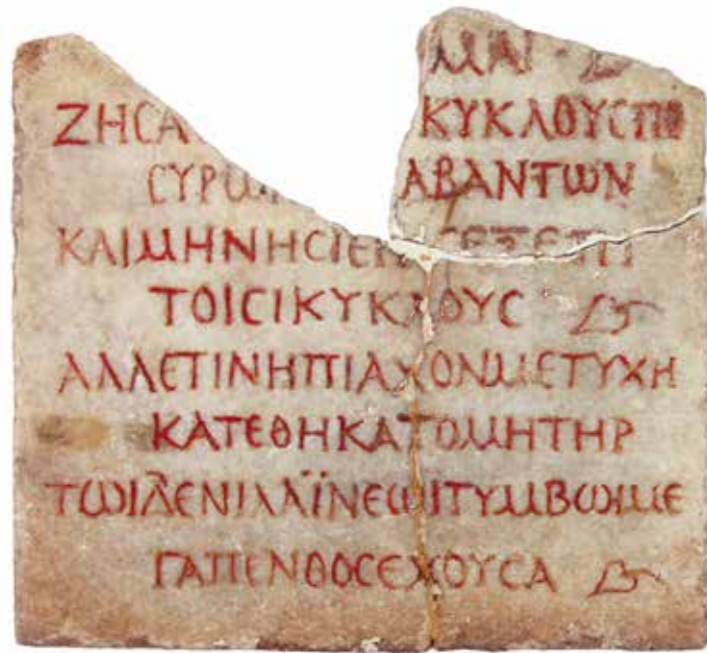 ΜΑΙ
ΖΗCΑ ΚΥΚΛΟΥC
CΥΡΩ ΑΒΑΝΤΩΝ
ΚΑΙΜΗΝΗCΙΕΡ CΕΞΕΠΙ
ΤΟΙCΙΚΥΚΛΟΥC
ΑΛΛΕΤΙΝΗΠΙΑΧΟΝΜΕΤΥΧΗ
ΚΑΤΕΘΗΚΑΤΟΜΗΤΗΡ
ΤΩΙΔΕΝΙΛΑΪΝΕΩΙΤΥΜΒΩΙΜΕ
ΓΑΠΕΝΘΟCΕΧΟΥCΑ